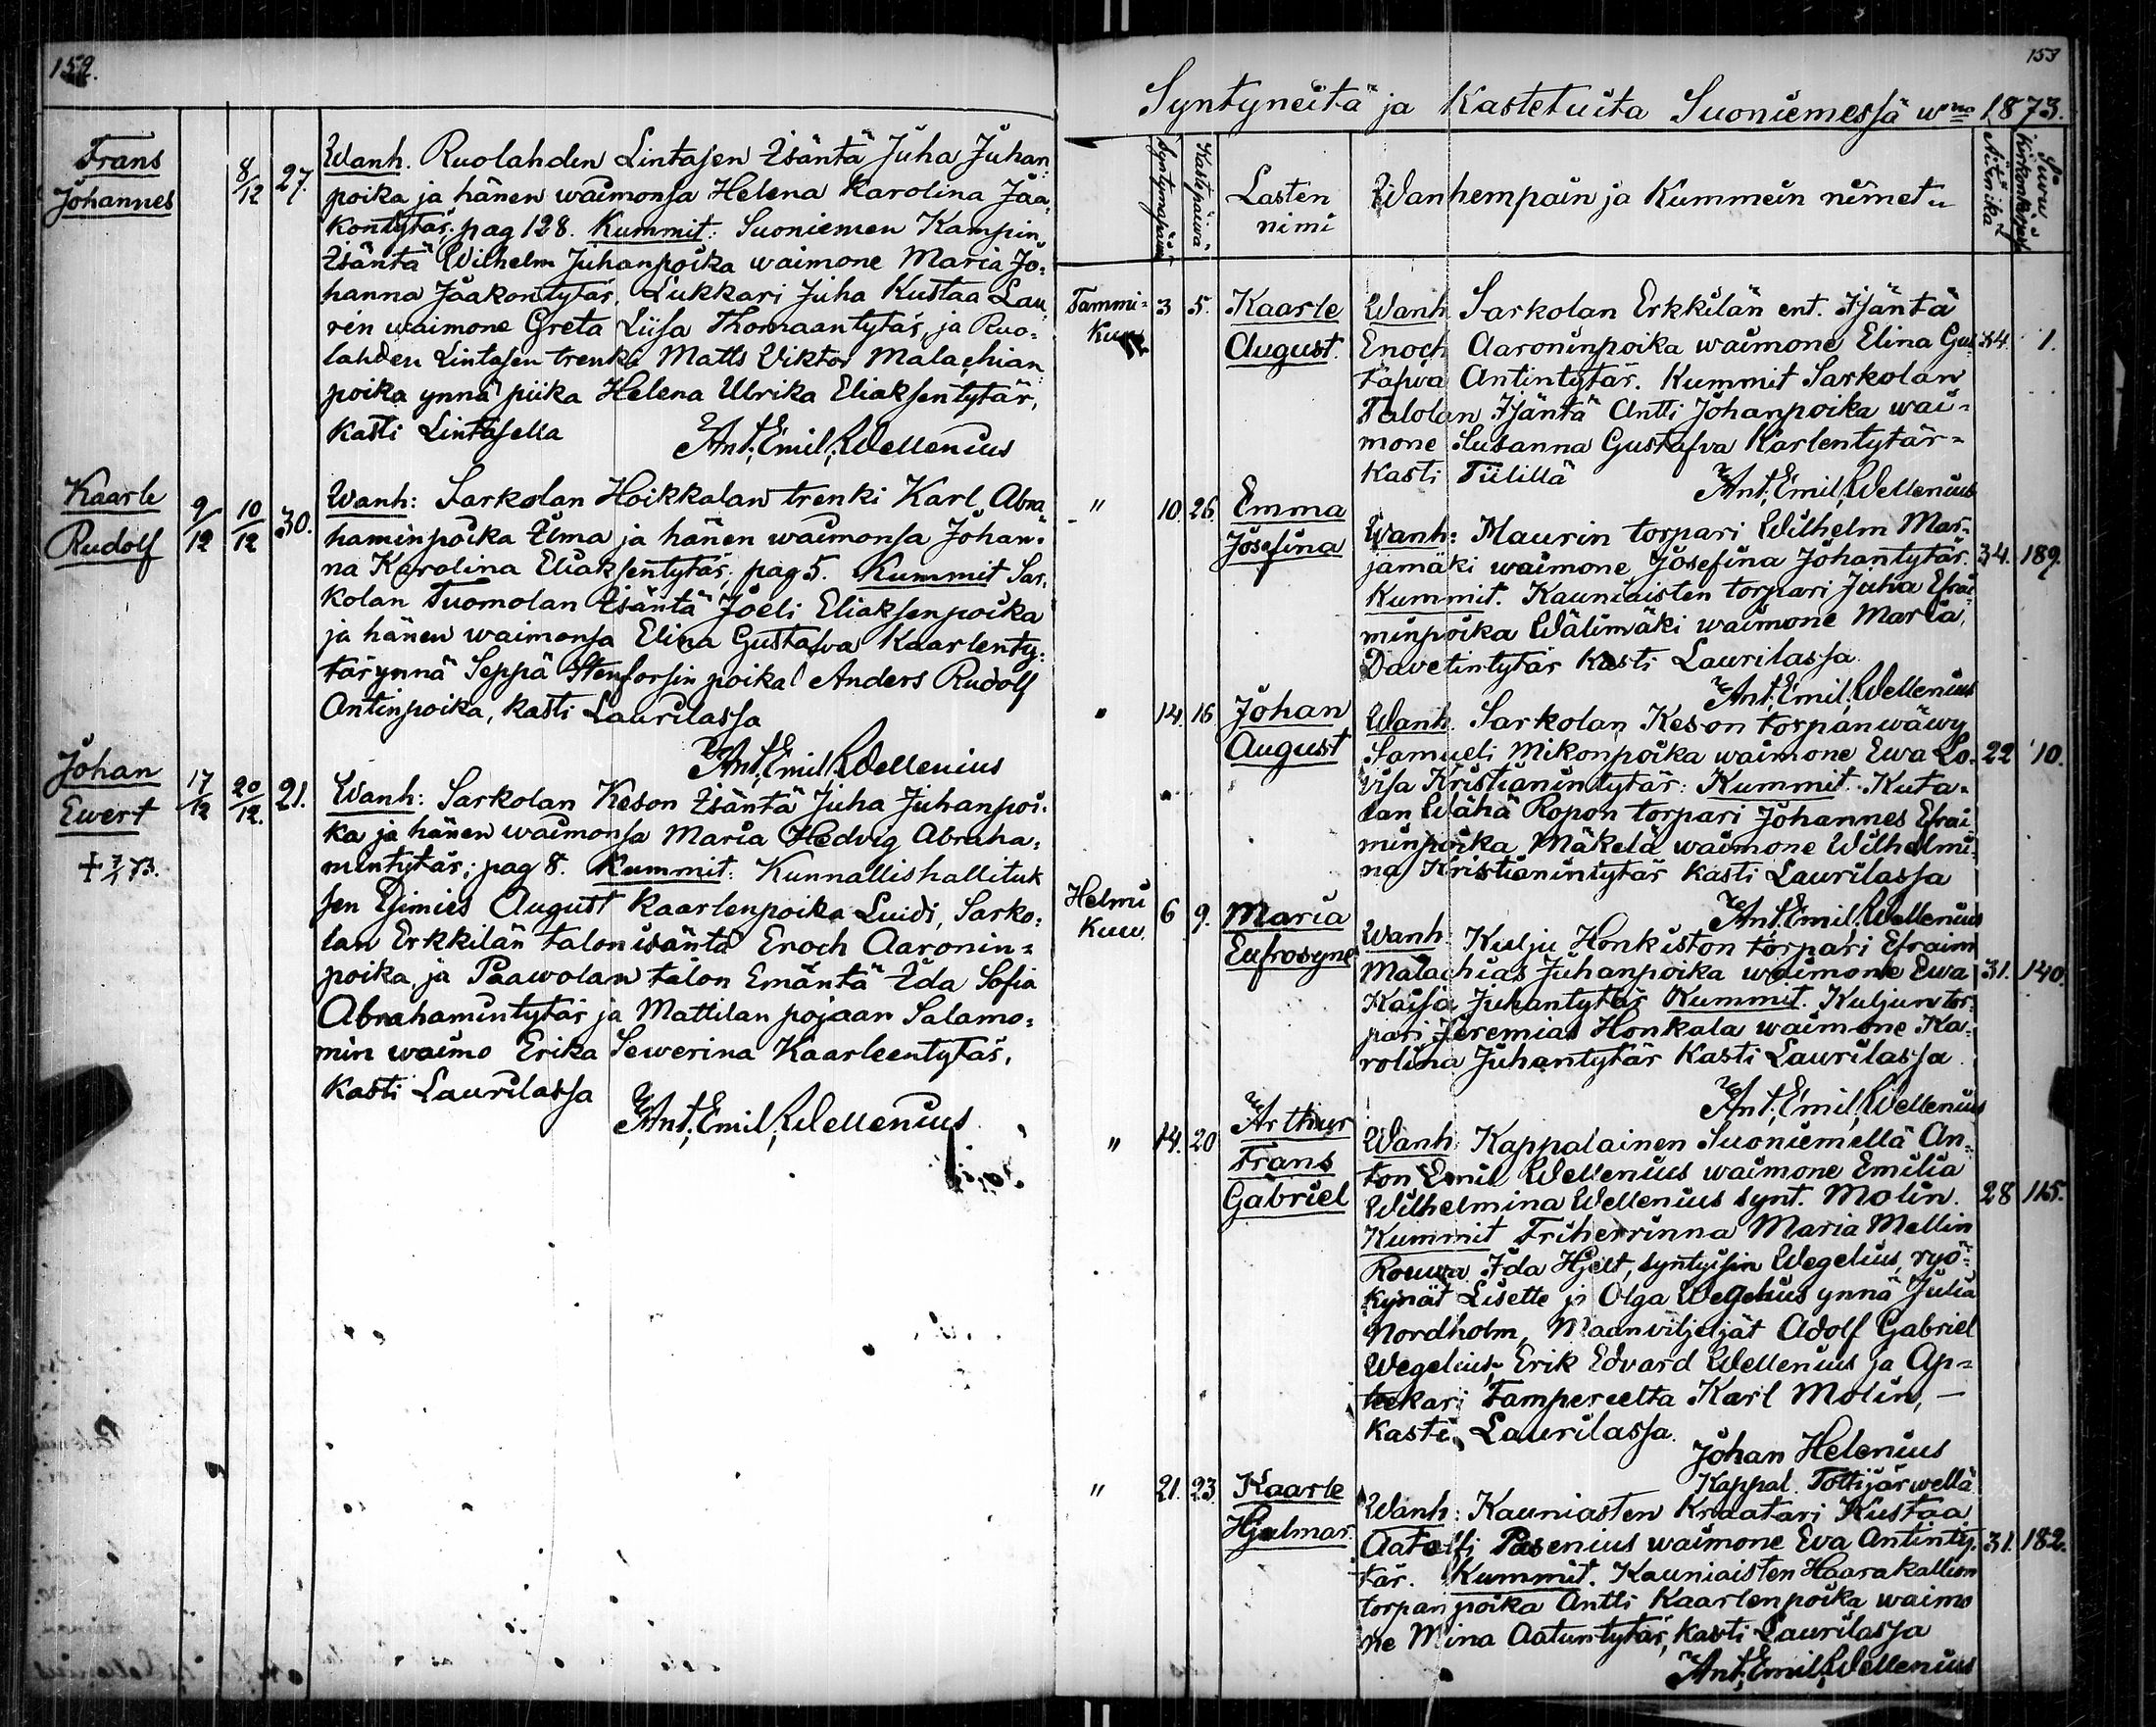 152.
Frans
Johannes
8/12
27.
Wanh. Ruolahden Lintasen Isäntä Juha Juhan-
poika ja hänen waimonsa Helena Karolina Jaa-
kontytär; pag 128. Kummit: Suoniemen Kampin
Isäntä Wilhelm Juhanpoika waimone Maria Jo-
hanna Jaakontytär, Lukkari Juha Kustaa Lau-
rén waimone Greta Liisa Thomaantytär, ja Ruo-
lahden Lintasen trenki Matts Viktor Malachian
poika ynnä piika Helena Ulrika Eliaksentytär,
Kasti Lintasella
Ant. Emil. Wellenius
Kaarle
Rudolf
9/12
10/12
30.
Wanh: Sarkolan Hoikkalan trenki Karl Abra-
haminpoika Ilma ja hänen waimonsa Johan-
na Karolina Eliaksentytär. pag 5. Kummit Sar-
kolan Tuomolan Isäntä Joeli Eliaksenpoika
ja hänen waimonsa Elina Gustafva Kaarlenty-
tär ynnä Seppä Stenforsin poika Anders Rudolf
Antinpoika, Kasti Laurilassa
Ant. Emil. Wellenius
Johan
Ewert
17/12
20/12.
21.
Wanh: Sarkolan Keson Isäntä Juha Juhanpoi-
ka ja hänen waimonsa Maria Hedvig Abraha-
mintytär; pag 8. Kummit: Kunnallishallituk
sen Esimies August Kaarlenpoika Luidi, Sarko-
lan Erkkilän talon isäntä Enoch Aaronin-
poika, ja Paawolan talon Emäntä Ida Sofia
Abrahamintytär ja Mattilan pojaan Salamo-
min waimo Erika Sewerina Kaarleentytär,
Kasti Laurilassa
Ant. Emil. Wellenius
153
Syntyneitä ja Kastetuita Suoniemessä wna 1873.
Syntymäpäivä
Kastepäiwä
Lasten
nimi
Wanhempain ja Kummein nimet
Äitin ikä
Tammi-
3
5.
Kaarle
August.
Wanh Sarkolan Erkkilän ent. Isäntä
Enoch Aaroninpoika waimone Elina Gus-
34.
1.
tafwa Antintytär. Kummit Sarkolan
Talolan Isäntä Antti Johanpoika wai-
mone Susanna Gustafva Karlentytär-
Kasti Tiilillä
Ant. Emil. Wellenius
"
10.
26.
Emma
Josefina
Wanh: Maurin torpari Wilhelm Mar-
jamäki waimone Josefina Johantytär.
34.
189.
Kummit. Kauniaisten torpari Juha Efrai-
minpoika Wälimäki waimone Maria,
Davetintytär Kasti Laurilassa.
Ant. Emil. Wellenius
"
14.
16.
Johan
August
Wanh. Sarkolan Keson torpanwäwy
Samueli Mikonpoika waimone Ewa Lo-
22
10.
visa Kristianintytär: Kummit. Kuta-
lan Wähä Ropon torpari Johannes Efrai
minpoika Mäkelä waimone Wilhelmi-
na Kristianintytär Kasti Laurilassa
Ant. Emil. Wellenius
Helmi
Kuu.
6
9.
Maria
Eufrosyne
Wanh: Kulju Honkiston torpari Efraim
Malachias Juhanpoika waimone Ewa
31.
140.
Kaisa Juhantytär Kummit. Kuljun tor-
pari Jeremias Honkala waimone Ka-
rolina Juhantytär Kasti Laurilassa
Ant. Emil. Wellenius
"
14.
20
Arthur
Frans
Gabriel
Wanh: Kappalainen Suoniemellä An-
ton Emil Wellenius waimone Emilia
Wilhelmina Wellenius synt. Molin.
28
115.
Kummit Friherrinna Maria Mellin
Rouwa Ida Hjelt, syntyisin Wegelius, ryö-
kynät Lisette ja Olga Wegelius ynnä Julia
Nordholm, Maanviljeljät Adolf Gabriel
Wegelius, Erik Edvard Wellenius ja Ap-
tekari Tampereelta Karl Molin, —
Kasti Laurilassa.
Johan Helenius
Kappal. Tottijärwellä
"
21.
23
Kaarle
Hjalmar.
Wanh: Kauniasten Kraatari Kustaa
Aatolfi Pasenius waimone Eva Antinty-
31.
182.
tär. Kummit. Kauniaisten Haarakallion
torpan poika Antti Kaarlenpoika waimo
ne Mina Aatuntytär, Kasti Laurilassa
Ant. Emil. Wellenius